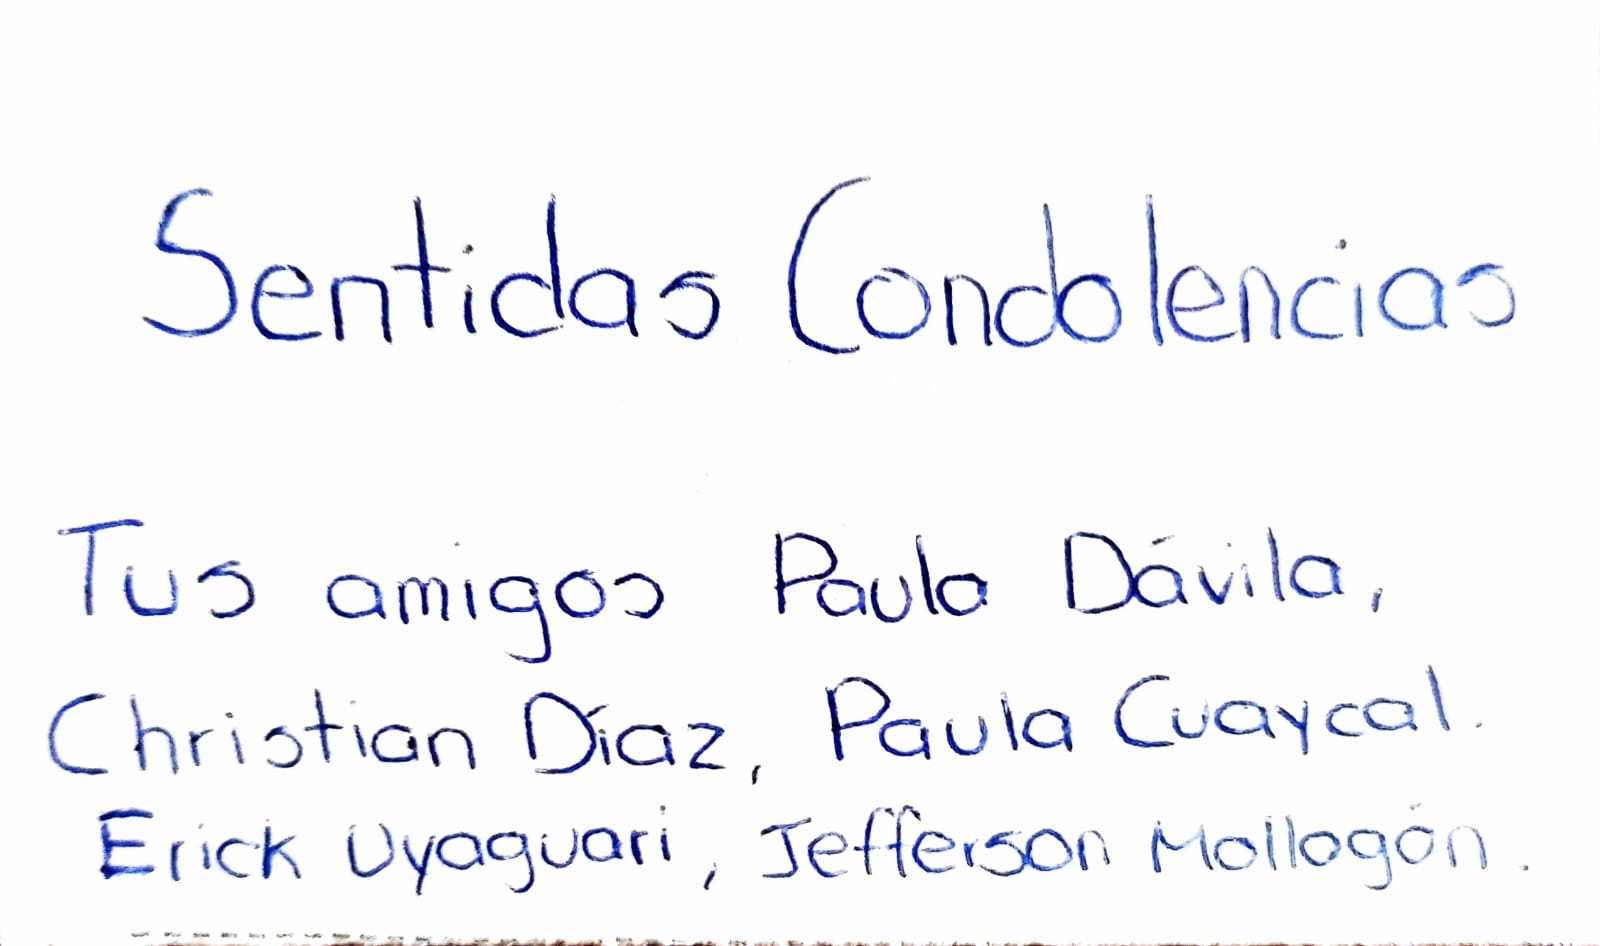 Sentidas Condolencias
Tus amigos Paula Dávila,
Christian Díaz, Paula Cuaycal.
Erick Uyaguari, Jefferson Mollogón.